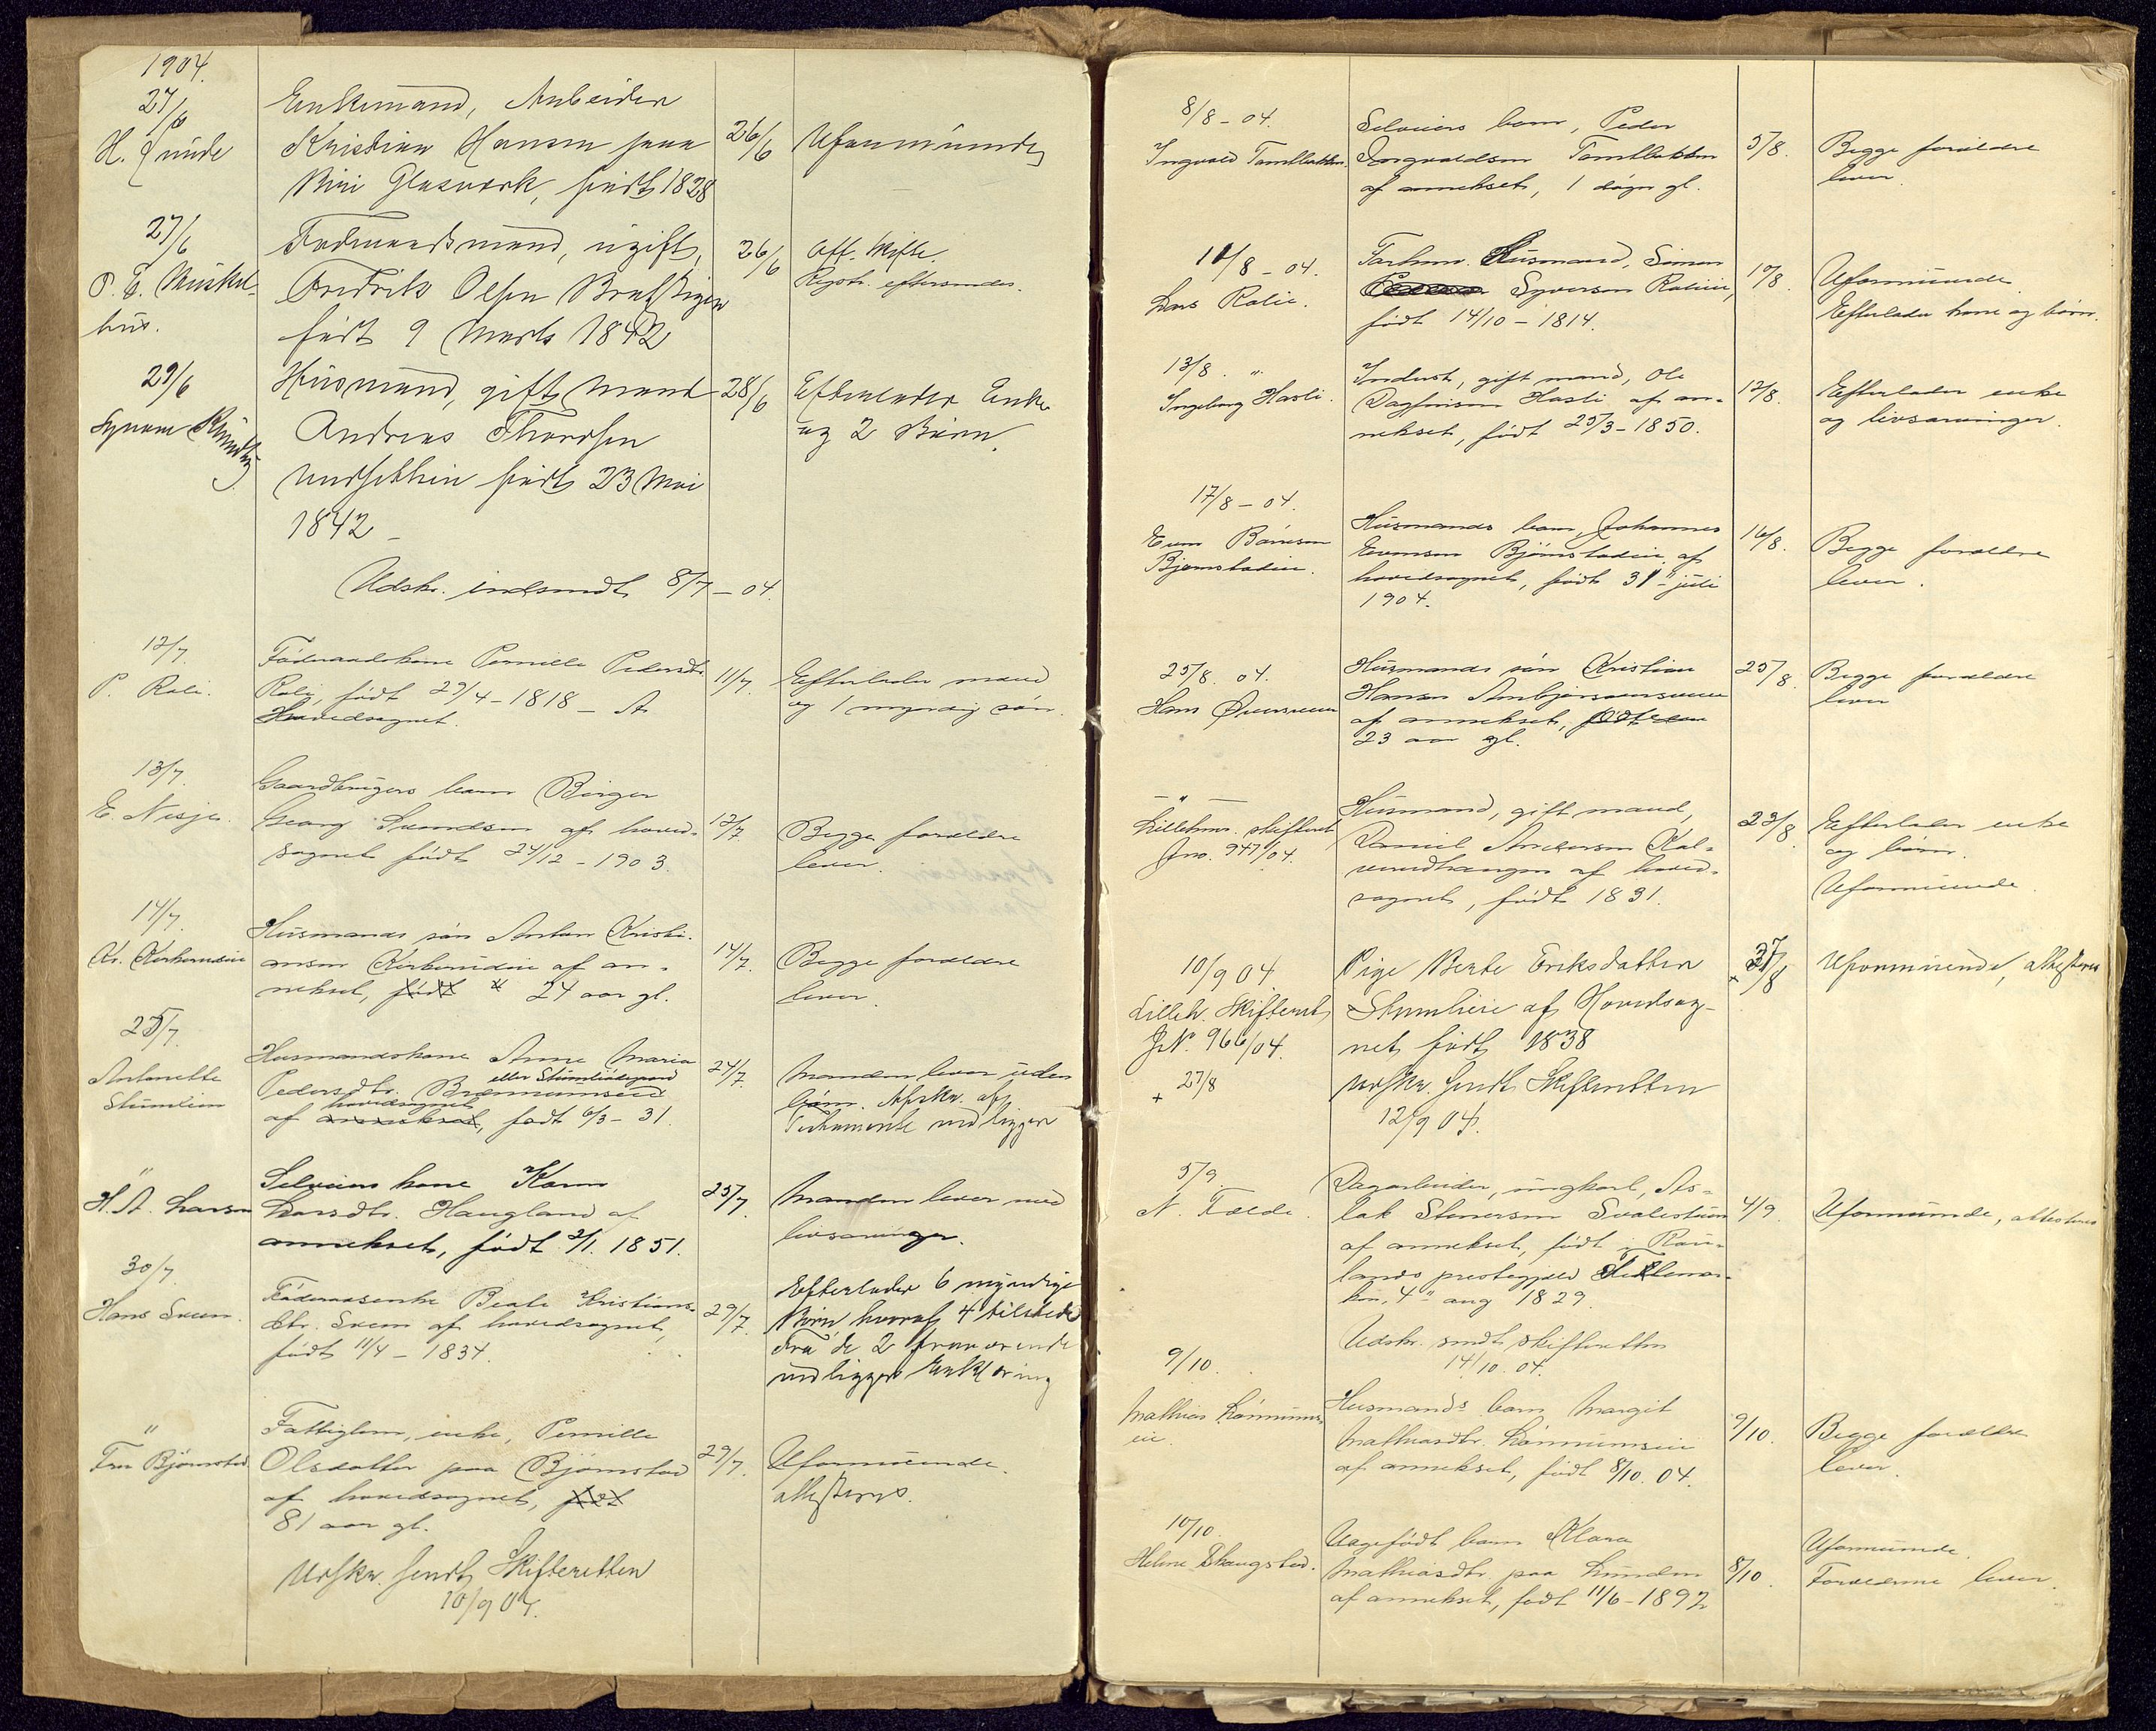 1904.
27/6
H. Gunde
Enkemand, Arbeider
Kristian Hansen paa
Biri Glasværk, født 1828
26/6
Uformuende
27/6
P. E. Muskel-
hus.
Føderaadsmand, ugift,
Fredrik Olsen
født 9 Marts 1842
26/6
Off. Skifte.
Regstr. eftersendes.
29/6
Husmand, gift Mand
Andreas Thordsen
født 23 Mai
1842
28/6
Efterlader Enke
og 2 Børn.
Udskr. indsendt 8/7 – 04.
12/7.
P. Roli.
Føderaadskone Pernille Pedersdtr.
Roli, født 29/4 - 1818 – Af
Hovedsognet.
11/7.
Efterlader mand
og 1 myndig søn.
13/7.
E. Nesje.
Gaardbrugers barn Birger
Georg Svendsen af hoved-
sognet født 24/12 - 1903.
12/7
Begge forældre
lever.
14/7.
Kr. Kirkerudeie
Husmands søn Anton Kristi-
ansen Kirkerudeie af an-
nekset, født 24 aar gl.
14/7.
Begge forældre
lever.
25/7.
Antonette
Stumlien
Husmandskone Anne Maria
eller Stumliødegaard
Pedersdtr. Brænnumseie
hovedsognet
af annekset, født 6/3 - 31.
24/7.
Manden lever uden
børn. Afskr. af
Testamente vedligger
"
H. A. Larsen
Selveiers kone Karen
Larsdtr. Haugland af
annekset, født 2/1. 1851.
25/7.
Manden lever med
livsarvinger.
30/7.
Hans Sveen.
Føderaadsenke Beate Kristians-
dtr. Sveen af hovedsognet,
født 11/4 - 1834.
29/7.
Efterlader 6 myndige
Børn hvoraf 4 tilstede
Fra de 2 fraværende
vedligger Erklæring
"
Fru Bjørnstad.
Fattiglem, enke, Pernille
Olsdatter paa Bjørnstad
af hovedsognet, født
81 aar gl.
29/7.
Uformuende.
attesteres.
Udskr. sendt Skifteretten
10/9 04.
8/8 - 04.
Ingvald Tomtbakken.
Selveiers barn, Peder
Ingvaldsen Tomtbakken
af annekset, 1 døgn gl.
5/8.
Begge forældre
lever.
11/8 - 04.
Lars Rolie.
Forhenv. Husmand, Simen
Syversen Rolieie,
født 14/10 - 1814.
10/8.
Uformuende.
Efterlader kone og børn.
13/8. "
Ingeborg Hasli.
Inderst, gift mand, Ole
Dagfinsen Hasli af an-
nekset, født 25/3 - 1850.
12/8.
Efterlader enke
og livsarvinger.
17/8 - 04.
Even Børresen
Bjørnstadeie.
Husmands barn, Johannes
Evensen Bjørnstadeie af
hovedsognet, født 31" juli
1904.
16/8.
Begge forældre
lever.
25/8. 04.
Hans Øversveen
Husmands søn Kristian
Hansen
af annekset, født
23 aar gl.
25/8.
Begge forældre
lever
— " —
Lillehmr. skifteret
Jno. 947/04.
Husmand, gift mand,
Daniel Andersen Kal-
verudhaugen af hoved-
sognet, født 1831.
23/8.
Efterlader enke
og børn.
Uformuende.
10/9 04.
Lilleh. Skifteret
JN. 966/04.
+ 27/8
Pige Berte Eriksdatter
Stumlieie af Hovedsog-
net født 1838
Udskr. sendt Skifteretten
12/9 04.
+ 27/8
Uformuende, attesteres
5/9.
N. Fælde.
Dagarbeider, ungkarl, As-
lak Stenersen Svalestuen
af annekset, født i Rau-
lands prestegjeld Thelemar-
ken, 4" aug 1829.
4/9.
Uformuende, attesteres
Udskr. sendt skifteretten
14/10. 04.
9/10.
Mathias Lønnums-
eie.
Husmands barn Margit
Mathiasdtr. Lønnumseie
af annekset, født 8/10. 04.
9/10.
Begge forældre
lever.
10/10.
Helene Skaugstad.
Uægefødt barn Klara
Mathiasdtr. paa Lunden
af annekset, født 11/6 - 1892
8/10.
Uformuende.
Forældrene lever.